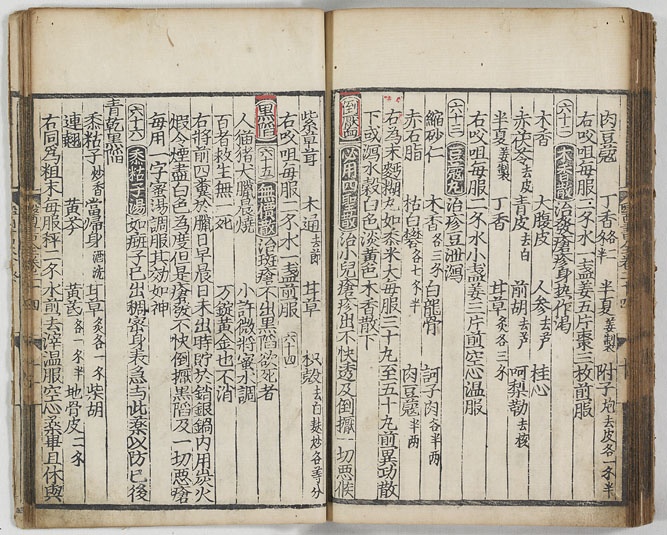 肉豆蔻 丁香各一錢半 半夏姜製 附子炮去皮各一錢半
右㕮咀每服二錢水一盞姜五片棗三枚煎服
六十二 木香散 治發瘡疹身熱作渴
木香 大腹皮 人參去芦 桂心
赤茯苓去皮 青皮去白 前胡去芦 呵梨勒去核
半夏姜製 丁香 甘草炙各三錢
右㕮咀每服二錢水小盞姜三片煎空心温服
六十三 豆蔻丸 治疹豆泄瀉
縮砂仁 木香各三錢 白龍骨 訶子肉各半兩
赤石脂 枯白礬各七錢半 肉豆蔻半兩
右為末麵糊丸如黍米大每服三十丸至五十丸煎異功散
下或瀉水穀白色淡黃色木香散下
倒靨 必用四聖散 治小兒瘡疹出不快透及倒攧一切惡候
紫草茸 木通去節 甘草 枳殼去白麸炒各等分
右㕮咀每服二錢水一盞煎服 六十四
黑陷 六十五 無價散 治斑瘡不出黑陷欲死者
人猫猪犬臘晨燒 小許微將蜜水調
百者救生無一死 万錠黃金也不消
右將前四糞於臘日早晨日未出時貯於銷銀鍋內用炭火
煆令煙盡白色為度但是瘡發不快倒攧黑陷及一切惡瘡
每用一字蜜湯調服其効如神
六十六 黍粘子湯 如斑子已出稠密身表急与此藥以防已後
青乾黑陷
黍粘子炒香 當歸身酒洗 甘草炙各一錢 柴胡
連翹 黃芩 黃芪各一錢半 地骨皮二錢
右同為粗末每服秤二錢水煎去滓温服空心藥畢且休與